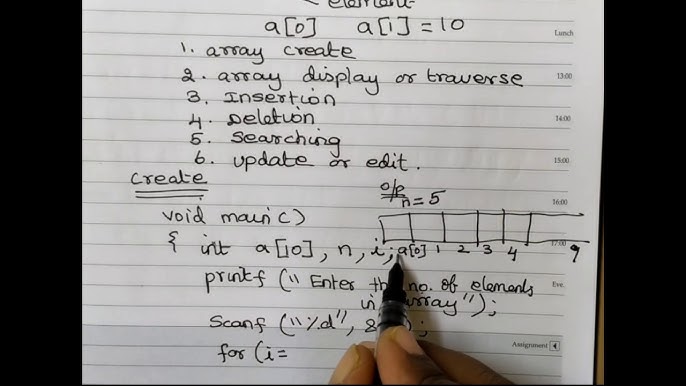 element
a[0] a[1] = 10
Lunch
1. array create
2. array display or traverse
13:00
3. Insertion
4. Deletion
14:00
5. Searching
6. update or edit.
15:00
create
o/p
n = 5
16:00
void main()
{ int a[10], n, i; a[0] 1 2 3 4 9
17:00
printf (" Enter the no. of elements
Eve.
in array");
Scanf ("%d",
Assignment
for (i=